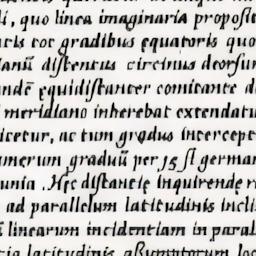 li, quo linea imaginaria proposite
ctis tot gradibus equatoris quo
distentus circinus deorsum
ęquidistanter comitante d
meridiano inherebat extendatu
icetur, ac tum gradus intercept
umerum graduū per 15 fl german
unia. Hęc distantię inquirendę r
ad parallelum latitudinis incli
ū linearum incidentiam in paral
latitudinis assumptorum loc